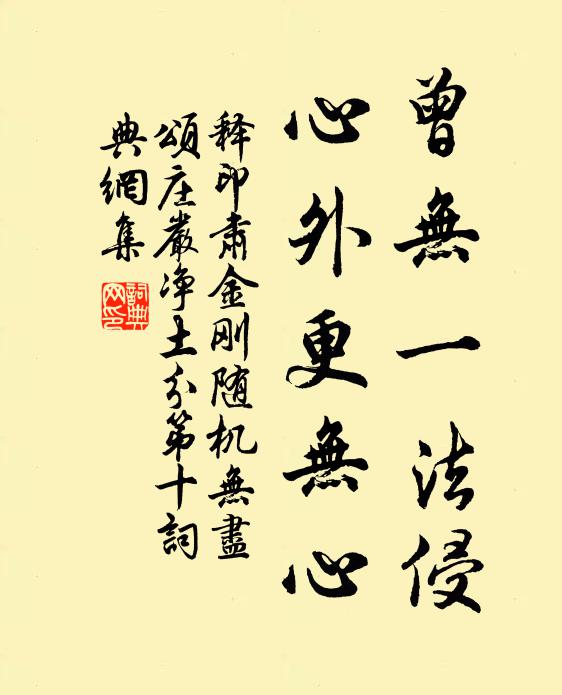 曾無一法侵
心外更無心
释印肃金刚随机無盡
頌庄嚴净土分第十詞
典網集
詞典
网印